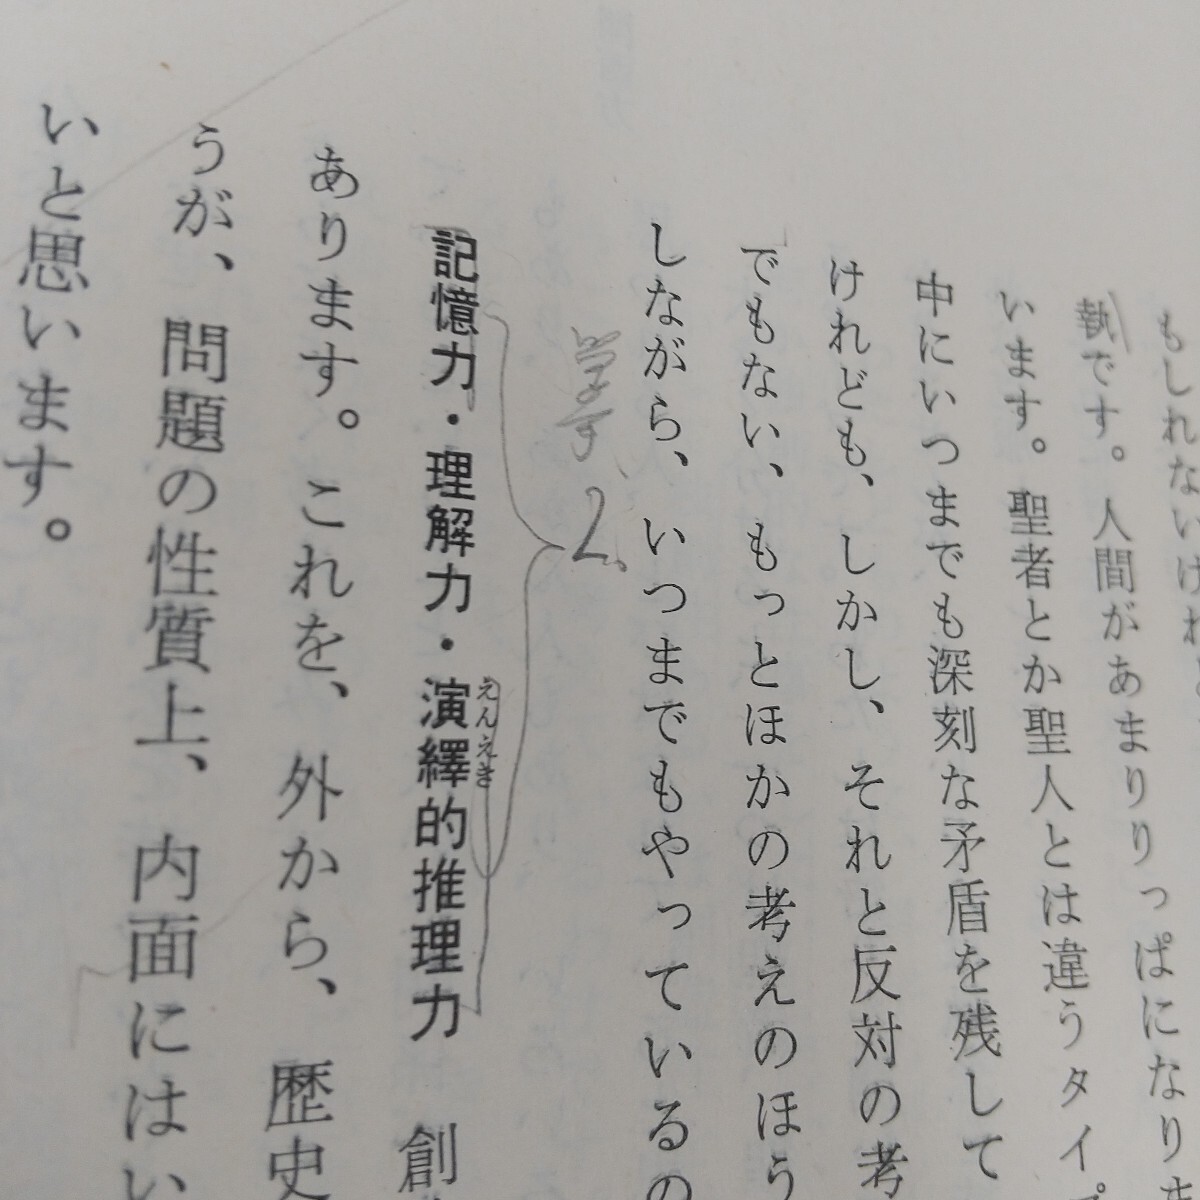 もしれないけれど
執です。人間があまりりっぱになりま
います。聖者とか聖人とは違うタイプ
中にいつまでも深刻な矛盾を残して
けれども、しかし、それと反対の考
でもない、もっとほかの考えのほう
しながら、いつまでもやっているの
2
記憶力・理解力・演繹的推理力 創
えんえき
あります。これを、外から、歴史
うが、問題の性質上、内面にはい
いと思います。